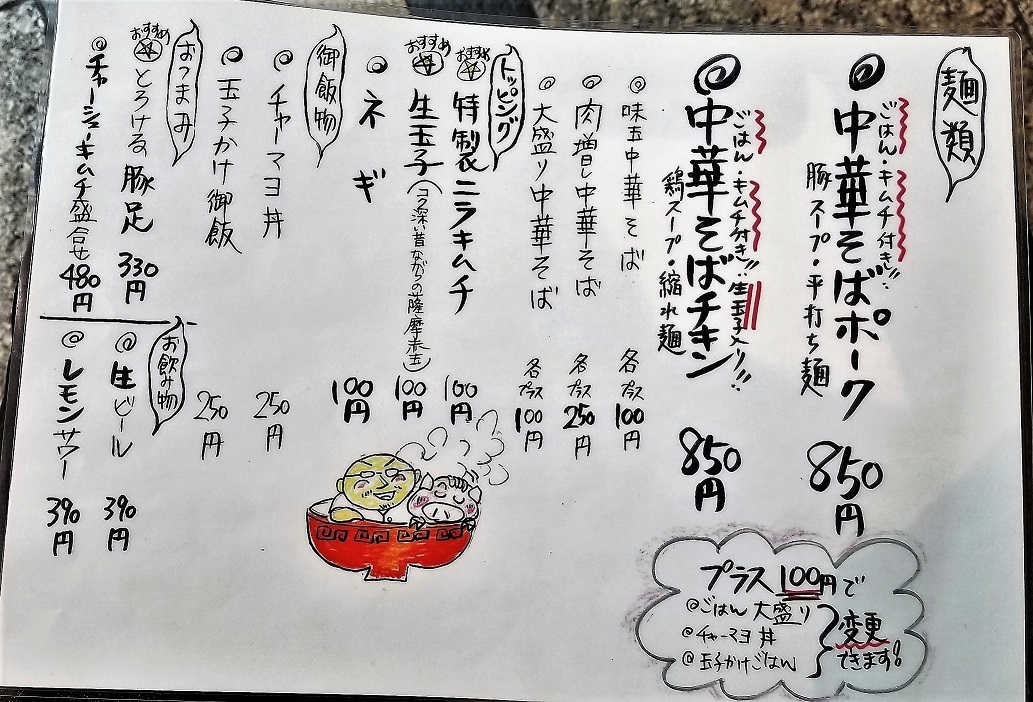 麺類
ごはん・キムチ付き!!
中華そばポーク 850円
豚スープ・平打ち麺
ごはん・キムチ付き!!生玉子入り!!
中華そばチキン 850円
鶏スープ・縮れ麺
味玉中華そば 各プラス100円
肉増し中華そば 各プラス250円
大盛り中華そば 各プラス100円
トッピング
おすすめ
特製ニラキムチ 100円
おすすめ
生玉子(コク深い昔ながらの薩摩赤玉) 100円
ネギ 100円
御飯物
チャーマヨ丼 250円
玉子かけ御飯 250円
おつまみ
おすすめ
とろける豚足 330円
チャーシューキムチ盛合せ 480円
お飲み物
生ビール 390円
レモンサワー 390円
プラス100円で
ごはん大盛り
チャーマヨ丼
玉子かけごはん
変更
できます!!